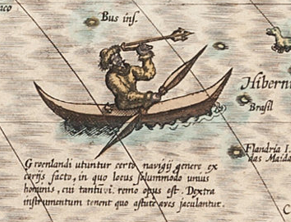 Bus ins.
Hiberni
Brasil
Flandria I.
das Maida
Groenlandi utuntur certo navigij genere ex
corijs facto, in quo locus solummodo unus
hominis, cui tantũ vi. remo opus est. Dextra
instrumentum tenent quo astute aves jaculantur.